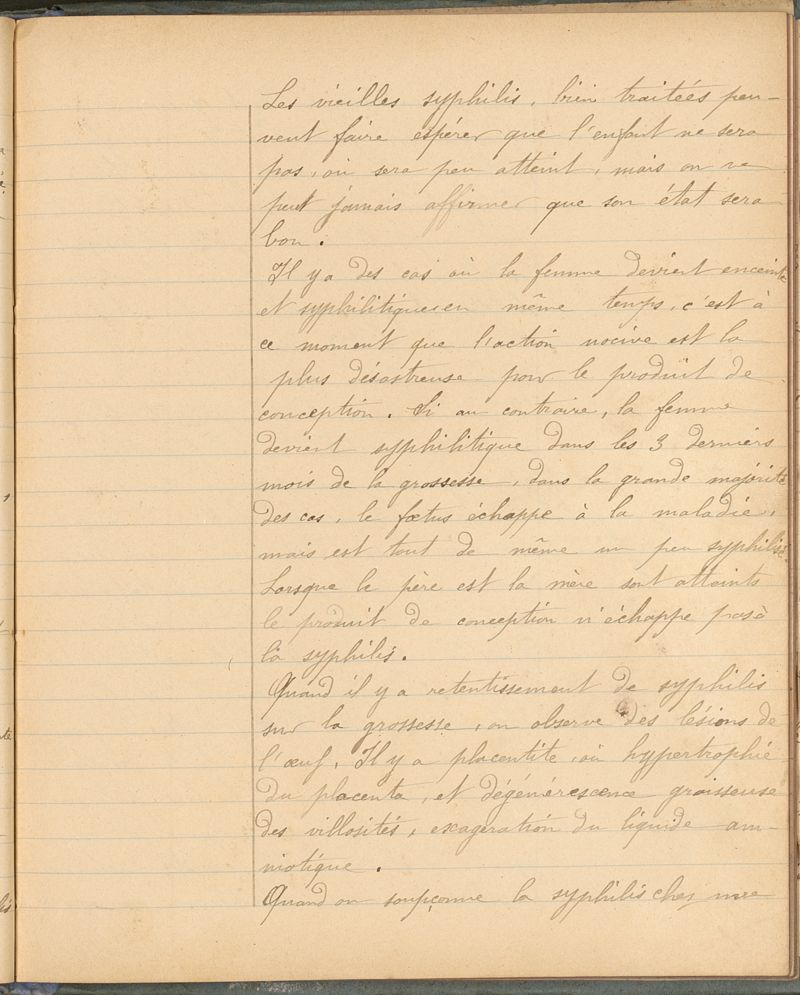 Les vieilles syphilis, bien traitées peu-
vent faire espérer que l'enfant ne sera
pas, où sera peu atteint, mais on ne
peut jamais affirmer que son état sera
bon.
Il y a des cas où la femme devient enceinte
et syphilitique en même temps, c'est à
ce moment que l'action nocive est la
plus désastreuse pour le produit de
conception. Si au contraire, la femme
devient syphilitique dans les 3 derniers
mois de la grossesse, dans la grande majorité
des cas, le fœtus échappe à la maladie,
mais est tout de même un peu syphilisé.
Lorsque le père est la mère sont atteints
le produit de conception n'échappe pas à
la syphilis.
Quand il y a retentissement de syphilis
sur la grossesse, on observe des lésions de
l'œuf. Il y a placentite, où hypertrophie
du placenta, et dégénérescence graisseuse
des villosités, exagération du liquide am-
niotique.
Quand on soupçonne la syphilis chez une